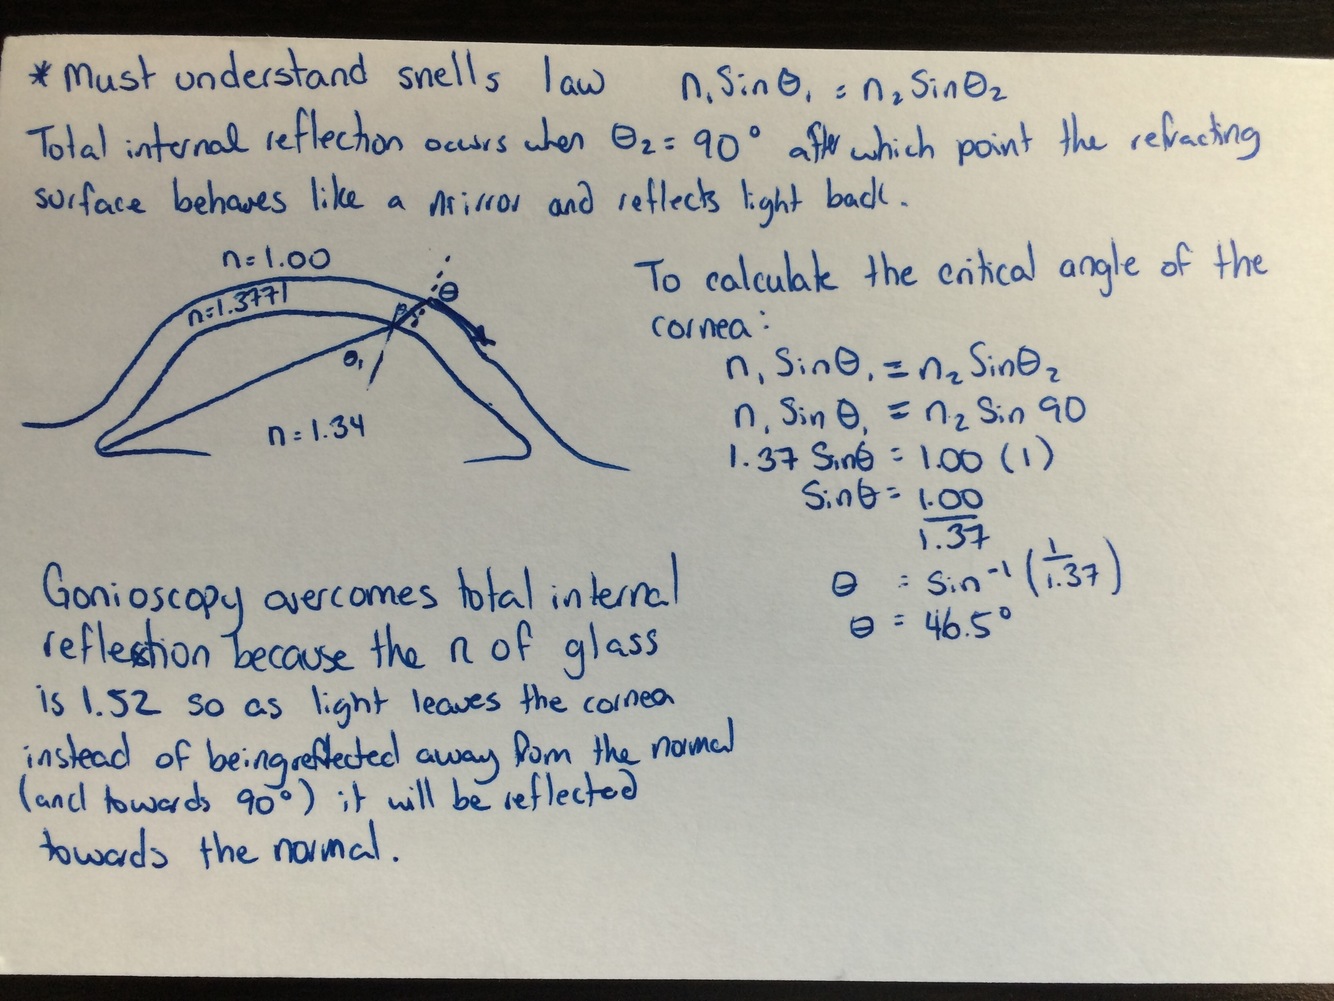 * Must understand snells law n₁ Sinθ₁ = n₂ Sinθ₂
Total internal reflection occurs when θ₂ = 90° after which point the refracting
surface behaves like a mirror and reflects light back.
n=1.00
n=1.3771
θ
θ₁
n=1.34
To calculate the critical angle of the
cornea:
n₁ Sinθ₁ = n₂ Sinθ₂
n₁ Sinθ₁ = n₂ Sin 90
1.37 Sinθ = 1.00 (1)
Sinθ = 1.00
1.37
θ = Sin⁻¹ (1/1.37)
θ = 46.5°
Gonioscopy overcomes total internal
reflection because the n of glass
is 1.52 so as light leaves the cornea
instead of being reflected away from the normal
(and towards 90°) it will be reflected
towards the normal.